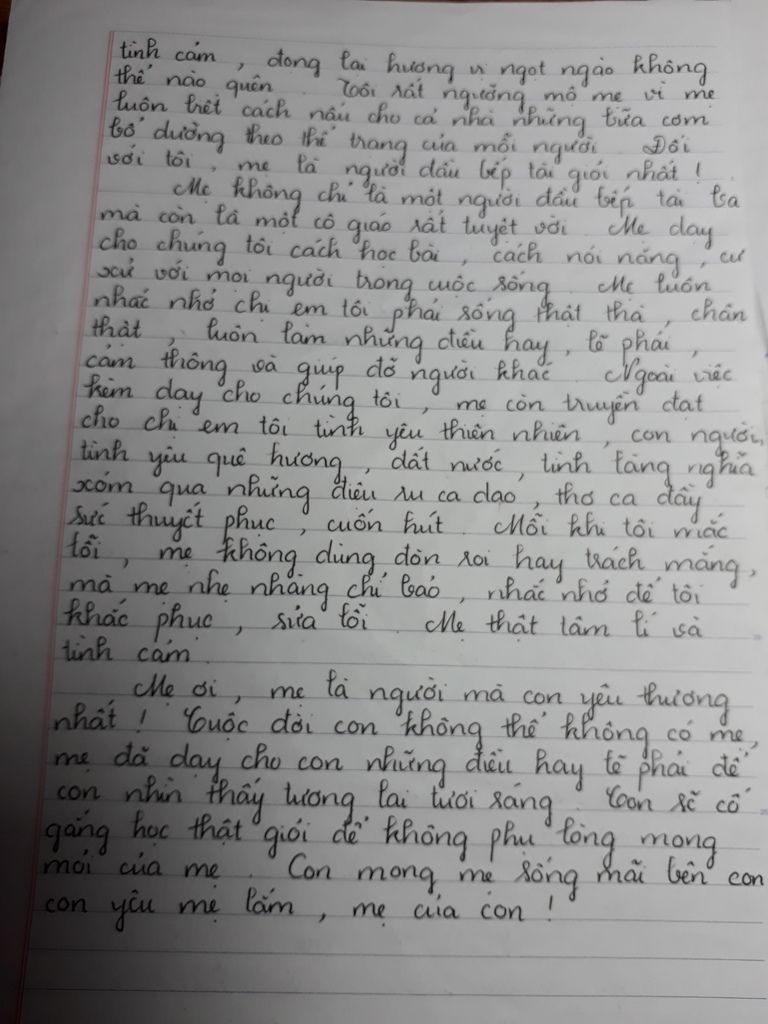 tình cảm, đong lại hương vị ngọt ngào không
thể nào quên. Tôi rất ngưỡng mộ mẹ vì mẹ
luôn biết cách nấu cho cả nhà những bữa cơm
bổ dưỡng theo thể trạng của mỗi người. Đối
với tôi, mẹ là người đầu bếp tài giỏi nhất!
Mẹ không chỉ là một người đầu bếp tài ba
mà còn là một cô giáo rất tuyệt vời. Mẹ dạy
cho chúng tôi cách học bài, cách nói năng, cư
xử với mọi người trong cuộc sống. Mẹ luôn
nhắc nhở chị em tôi phải sống thật thà, chân
thật, luôn làm những điều hay, lẽ phải,
cảm thông và giúp đỡ người khác. Ngoài việc
kèm dạy cho chúng tôi, mẹ còn truyền đạt
cho chị em tôi tình yêu thiên nhiên, con người,
tình yêu quê hương, đất nước, tình làng nghĩa
xóm qua những điệu ru ca dao, thơ ca đầy
sức thuyết phục, cuốn hút. Mỗi khi tôi mắc
lỗi, mẹ không dùng đòn roi hay trách mắng,
mà mẹ nhẹ nhàng chỉ bảo, nhắc nhở để tôi
khắc phục, sửa lỗi. Mẹ thật tâm lí và
tình cảm.
Mẹ ơi, mẹ là người mà con yêu thương
nhất! Cuộc đời con không thể không có mẹ,
mẹ đã dạy cho con những điều hay lẽ phải để
con nhìn thấy tương lai tươi sáng. Con sẽ cố
gắng học thật giỏi để không phụ lòng mong
mỏi của mẹ. Con mong mẹ sống mãi bên con
con yêu mẹ lắm, mẹ của con!